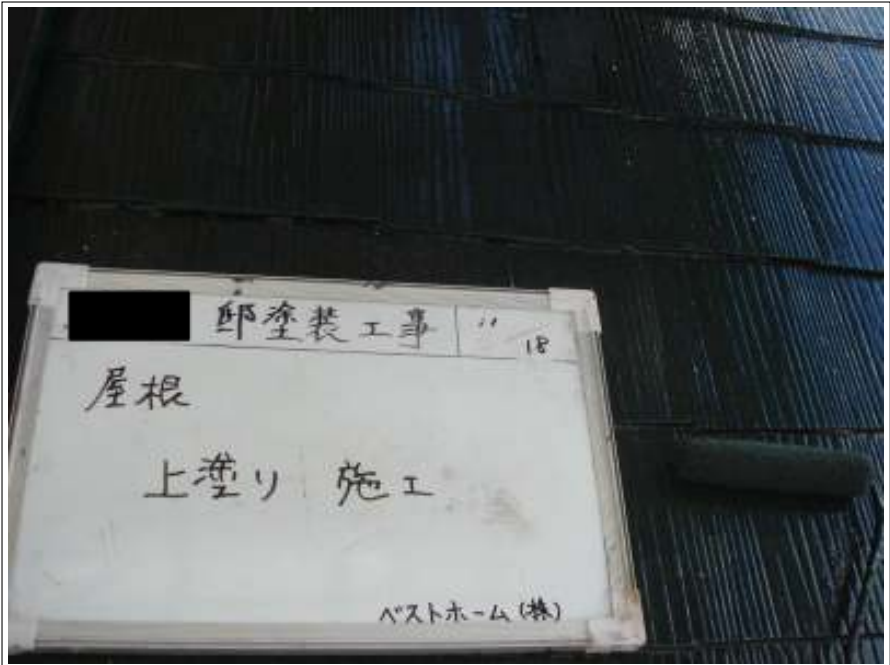 邸塗装工事 11/18
屋根
上塗り 施工
ベストホーム(株)